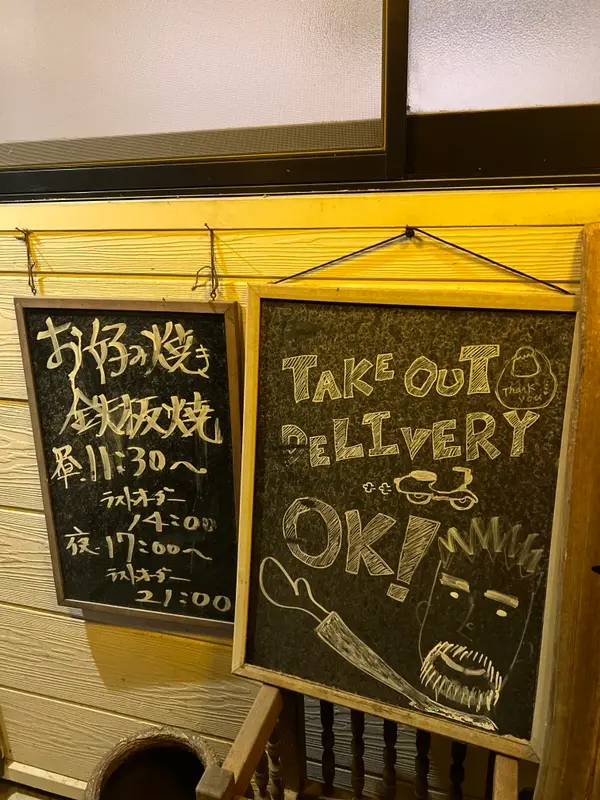 お好み焼き
鉄板焼
昼.11:30〜
ラストオーダー
14:00
夜.17:00〜
ラストオーダー
21:00
TAKE OUT
Thank you
DELIVERY
OK!